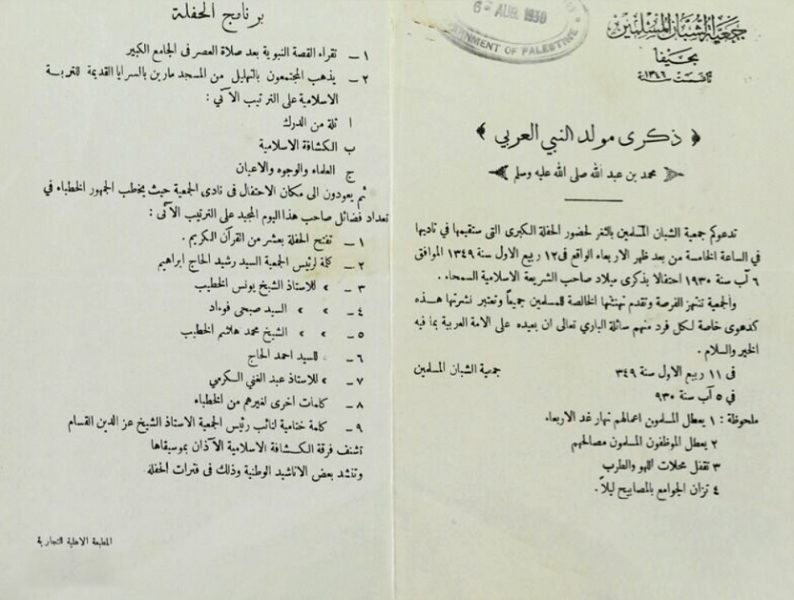 جمعية الشبان المسلمين
بحيفا
تأسست سنة ١٣٤٦
6 AUG. 1930
GOVERNMENT OF PALESTINE
﴿ ذكرى مولد النبي العربي ﴾
محمد بن عبد الله صلى الله عليه وسلم
تدعوكم جمعية الشبان المسلمين بالثغر لحضور الحفلة الكبرى التى ستقيمها في ناديها
في الساعة الخامسة من بعد ظهر الاربعاء الواقع فى ١٢ ربيع الاول سنة ١٣٤٩ الموافق
٦ آب سنة ١٩٣٠ احتفالا بذكرى ميلاد صاحب الشريعة الاسلامية السمحاء .
والجمعية تنتهز الفرصة وتقدم تهنئتها الخالصة للمسلمين جميعاً وتعتبر نشرتها هـذه
كدعوى خاصة لكل فرد منهم سائلة الباري تعالى ان يعيده على الامة العربية بما فيه
الخير والسلام .
فى ١١ ربيع الاول سنة ٣٤٩ جمعية الشبان المسلمين
فى ٥ آب سنة ٩٣٠
ملحوظة : ١ يعطل المسلمون اعمالهم نهار غد الاربعاء
٢ يعطل الموظفون المسلمون مصالحهم
٣ تقفل محلات اللهو والطرب
٤ تزان الجوامع بالمصابيح ليلاً .
برنامج الحفلة
١ – تقراء القصة النبوية بعد صلاة العصر فى الجامع الكبير
٢ – يذهب المجتمعون بالتهليل من المسجد مارين بالسرايا القديمة للتربة
الاسلامية على الترتيب الآتي :
ا ثلة من الدرك
ب الكشافة الاسلامية
ج العلماء والوجوه والاعيان
ثم يعودون الى مكان الاحتفال فى نادى الجمعية حيث يخطب الجمهور الخطباء في
تعداد فضائل صاحب هذا اليوم المجيد على الترتيب الآتى :
١ – تفتح الحفلة بعشر من القرآن الكريم .
٢ – كلمة لرئيس الجمعية السيد رشيد الحاج ابراهيم
٣ – » للاستاذ الشيخ يونس الخطيب
٤ – » » السيد صبحى فوءاد
٥ – » » الشيخ محمد هاشم الخطيب
٦ – » للسيد احمد الحاج
٧ – » للاستاذ عبد الغني الكرمي
٨ – كلمات اخرى لغيرهم من الخطباء
٩ – كلمة ختامية لنائب رئيس الجمعية الاستاذ الشيخ عز الدين القسام
تشنف فرقة الكشافة الاسلامية الآذان بموسيقاها
وتنشد بعض الاناشيد الوطنية وذلك فى فترات الحفلة .
المطبعة الاهلية التجارية